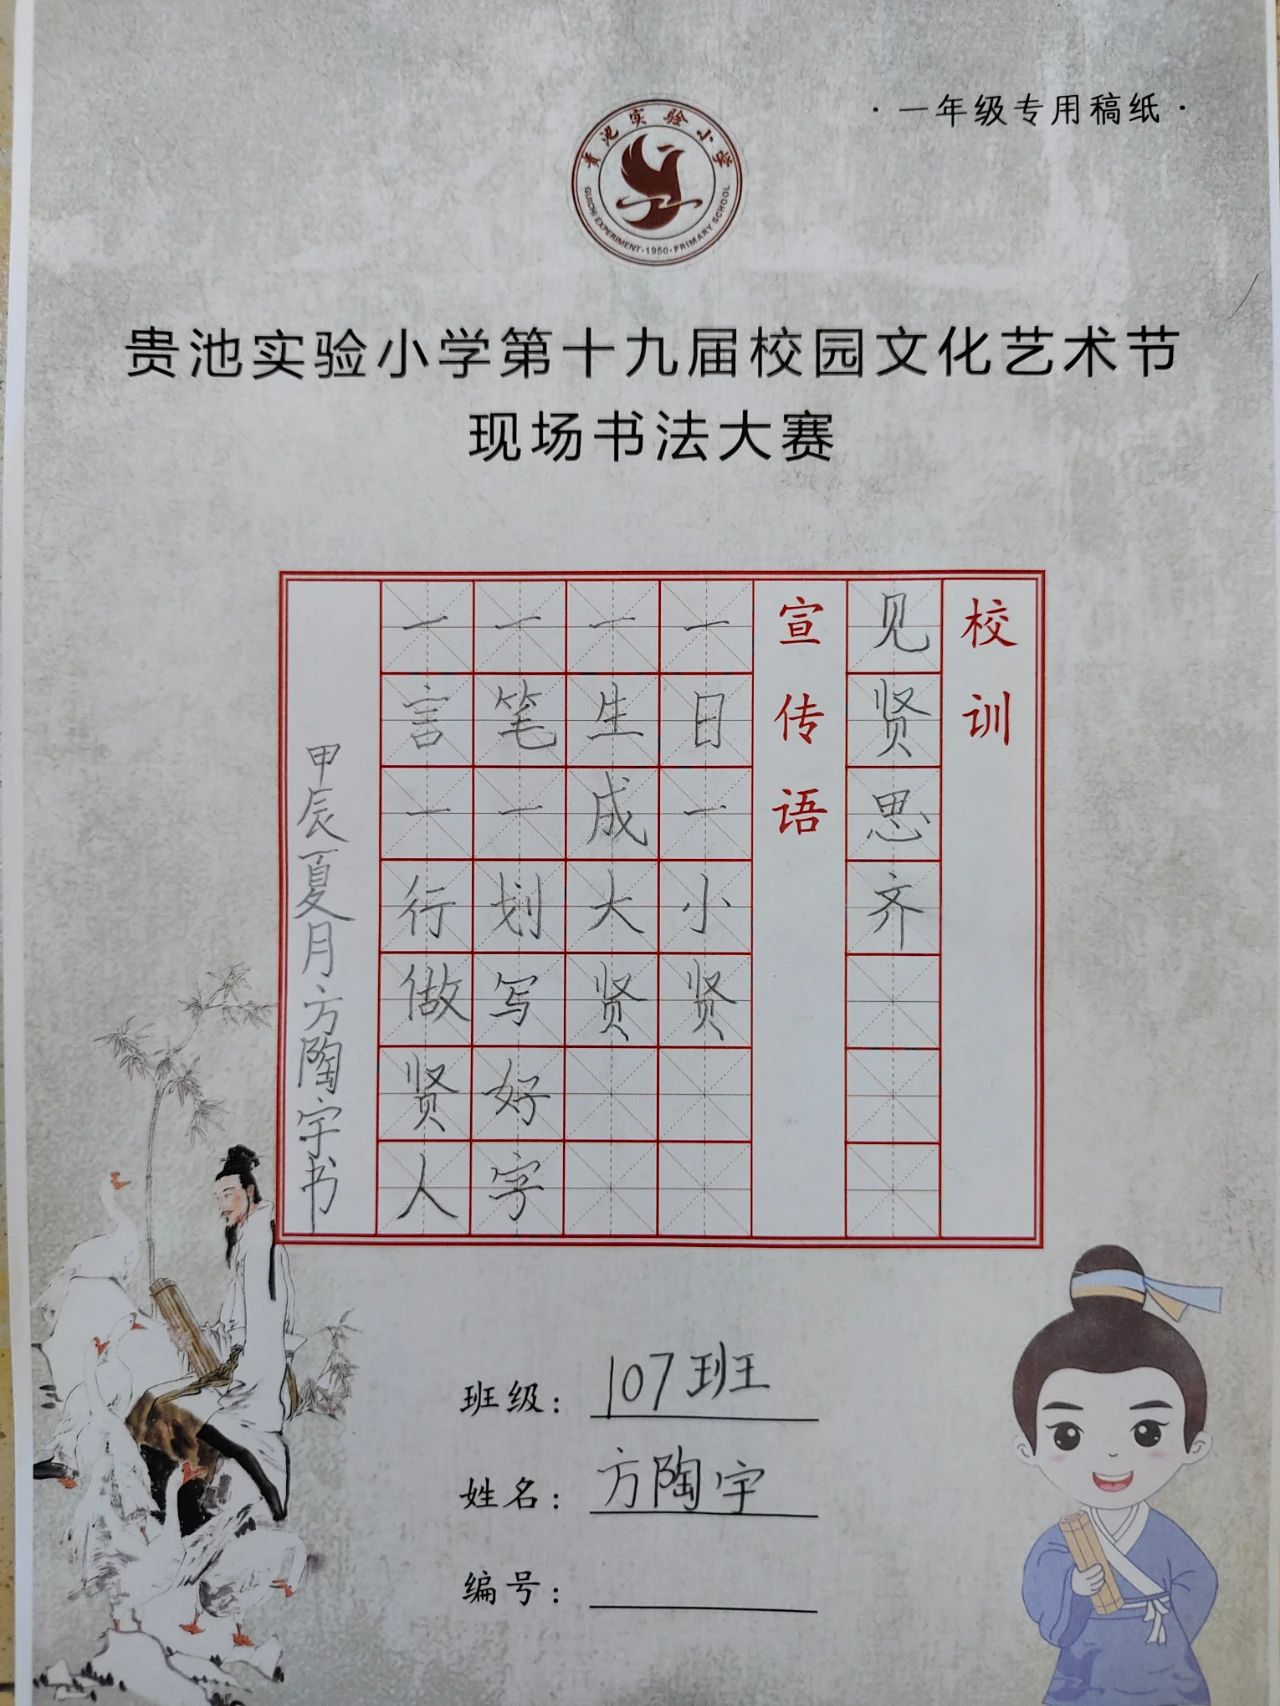 ·一年级专用稿纸·
贵池实验小学
GUICHI EXPERIMENT·1950·PRIMARY SCHOOL
贵池实验小学第十九届校园文化艺术节
现场书法大赛
校训
见贤思齐
宣传语
一日一小贤
一生成大贤
一笔一划写好字
一言一行做贤人
甲辰夏月方陶宇书
班级：107班
姓名：方陶宇
编号：